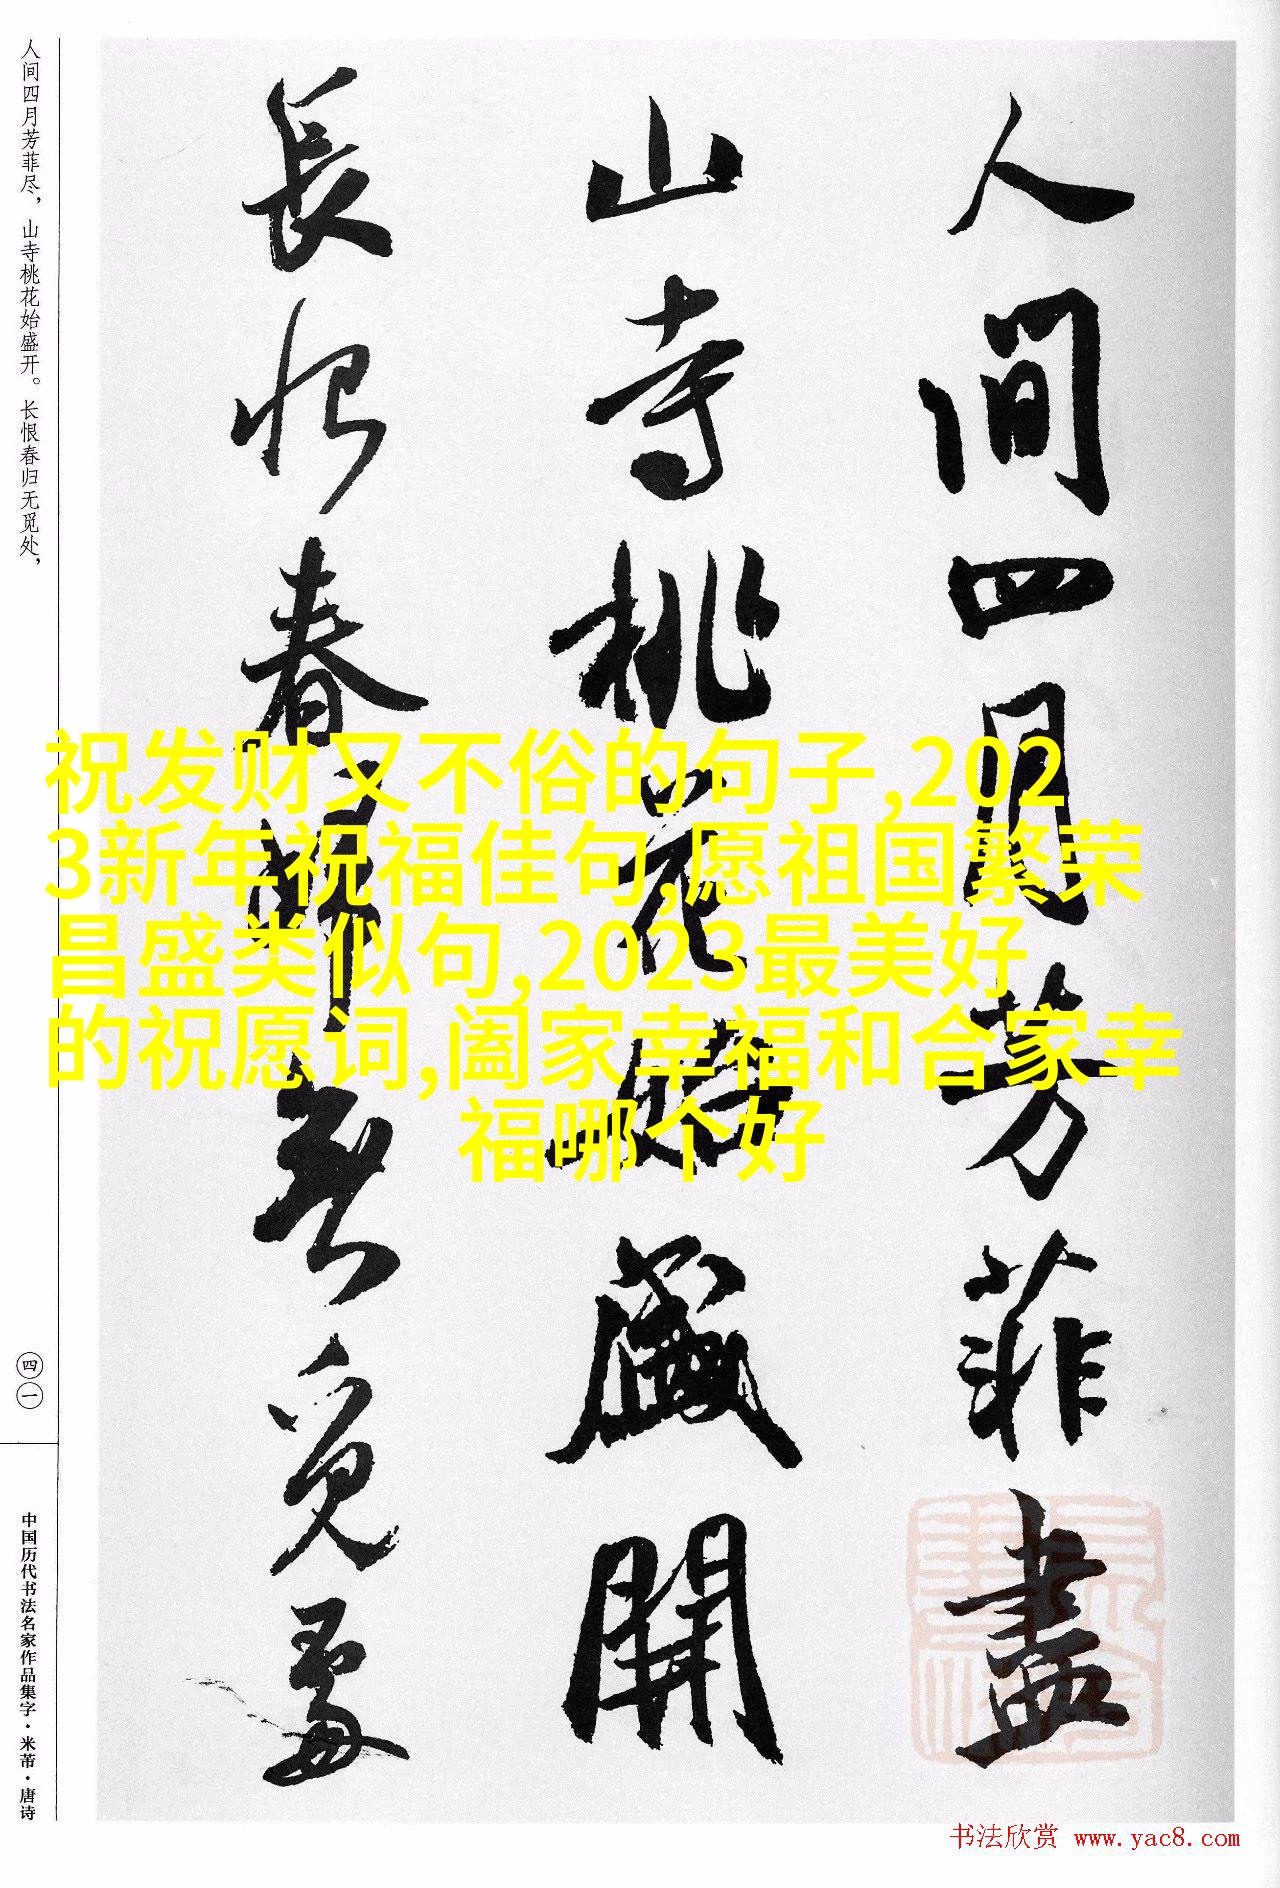 人間四月芳菲盡
山寺桃花始盛開
長恨春歸無覓處
人间四月芳菲尽，山寺桃花始盛开。长恨春归无觅处，
四一
中国历代书法名家作品集字·米芾·唐诗
祝发财又不俗的句子,202
3新年祝福佳句,愿祖国繁荣
昌盛类似句,2023最美好
的祝愿词,阖家幸福和合家幸
福哪个好
书法欣赏 www.yac8.com